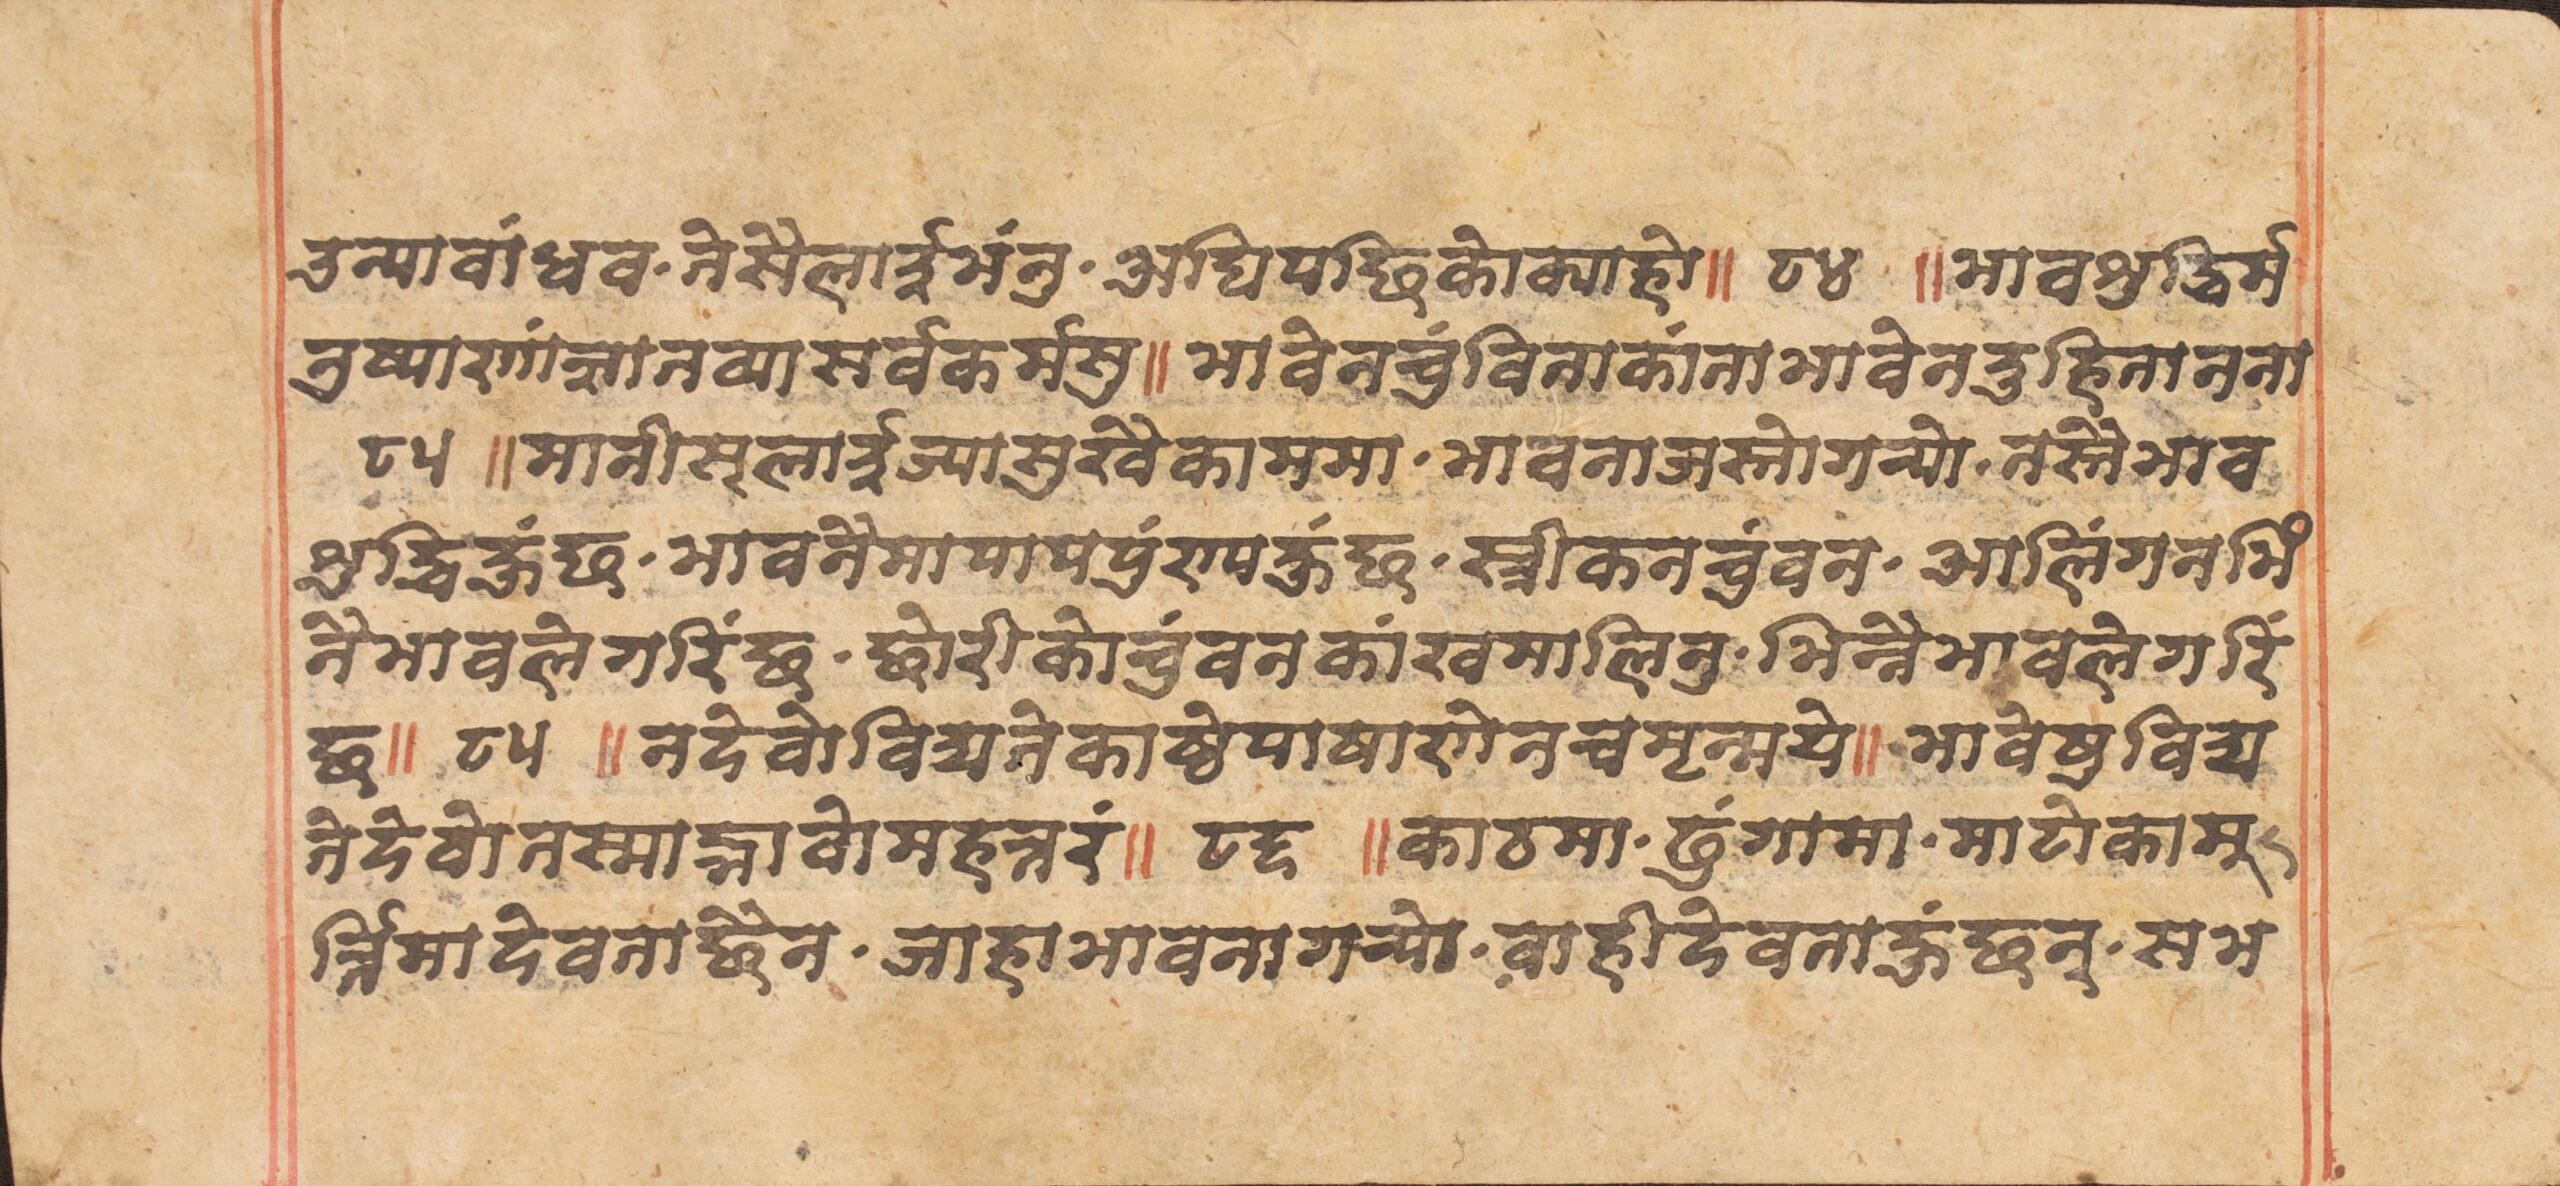 उन्यावांधव·तेसैलाईभंनु·अघिपछिकोक्याहो॥ ८४ ॥भावशुद्धिर्म
नुष्याणांज्ञातव्यासर्वकर्मसु॥भावेनचुंविताकांताभावेनदुहितानना
८५ ॥मानीस्लाईज्यासुखैकाममा·भावनाजस्तोगन्यो·तस्तैभाव
शुद्धिहुंछ·भावनैमापापपुंण्यहुंछ·स्त्रीकनचुंवन·आलिंगनभिं
नैभावलेगरिंछ·छोरीकोचुंवनकांखमालिनु·भिन्नैभावलेगरिं
छ॥ ८५ ॥नदेवोविद्यतेकाष्ठेपाषाणेनचमृन्मये॥भावेषुविद्य
तेदेवोतस्माद्भावोमहत्तरं॥ ८६ ॥काठमा·ढुंगामा·माटोकामू
र्त्तिमादेवताछैन·जाहाभावनागन्यो·वाहीदेवताहुंछन्·सभ